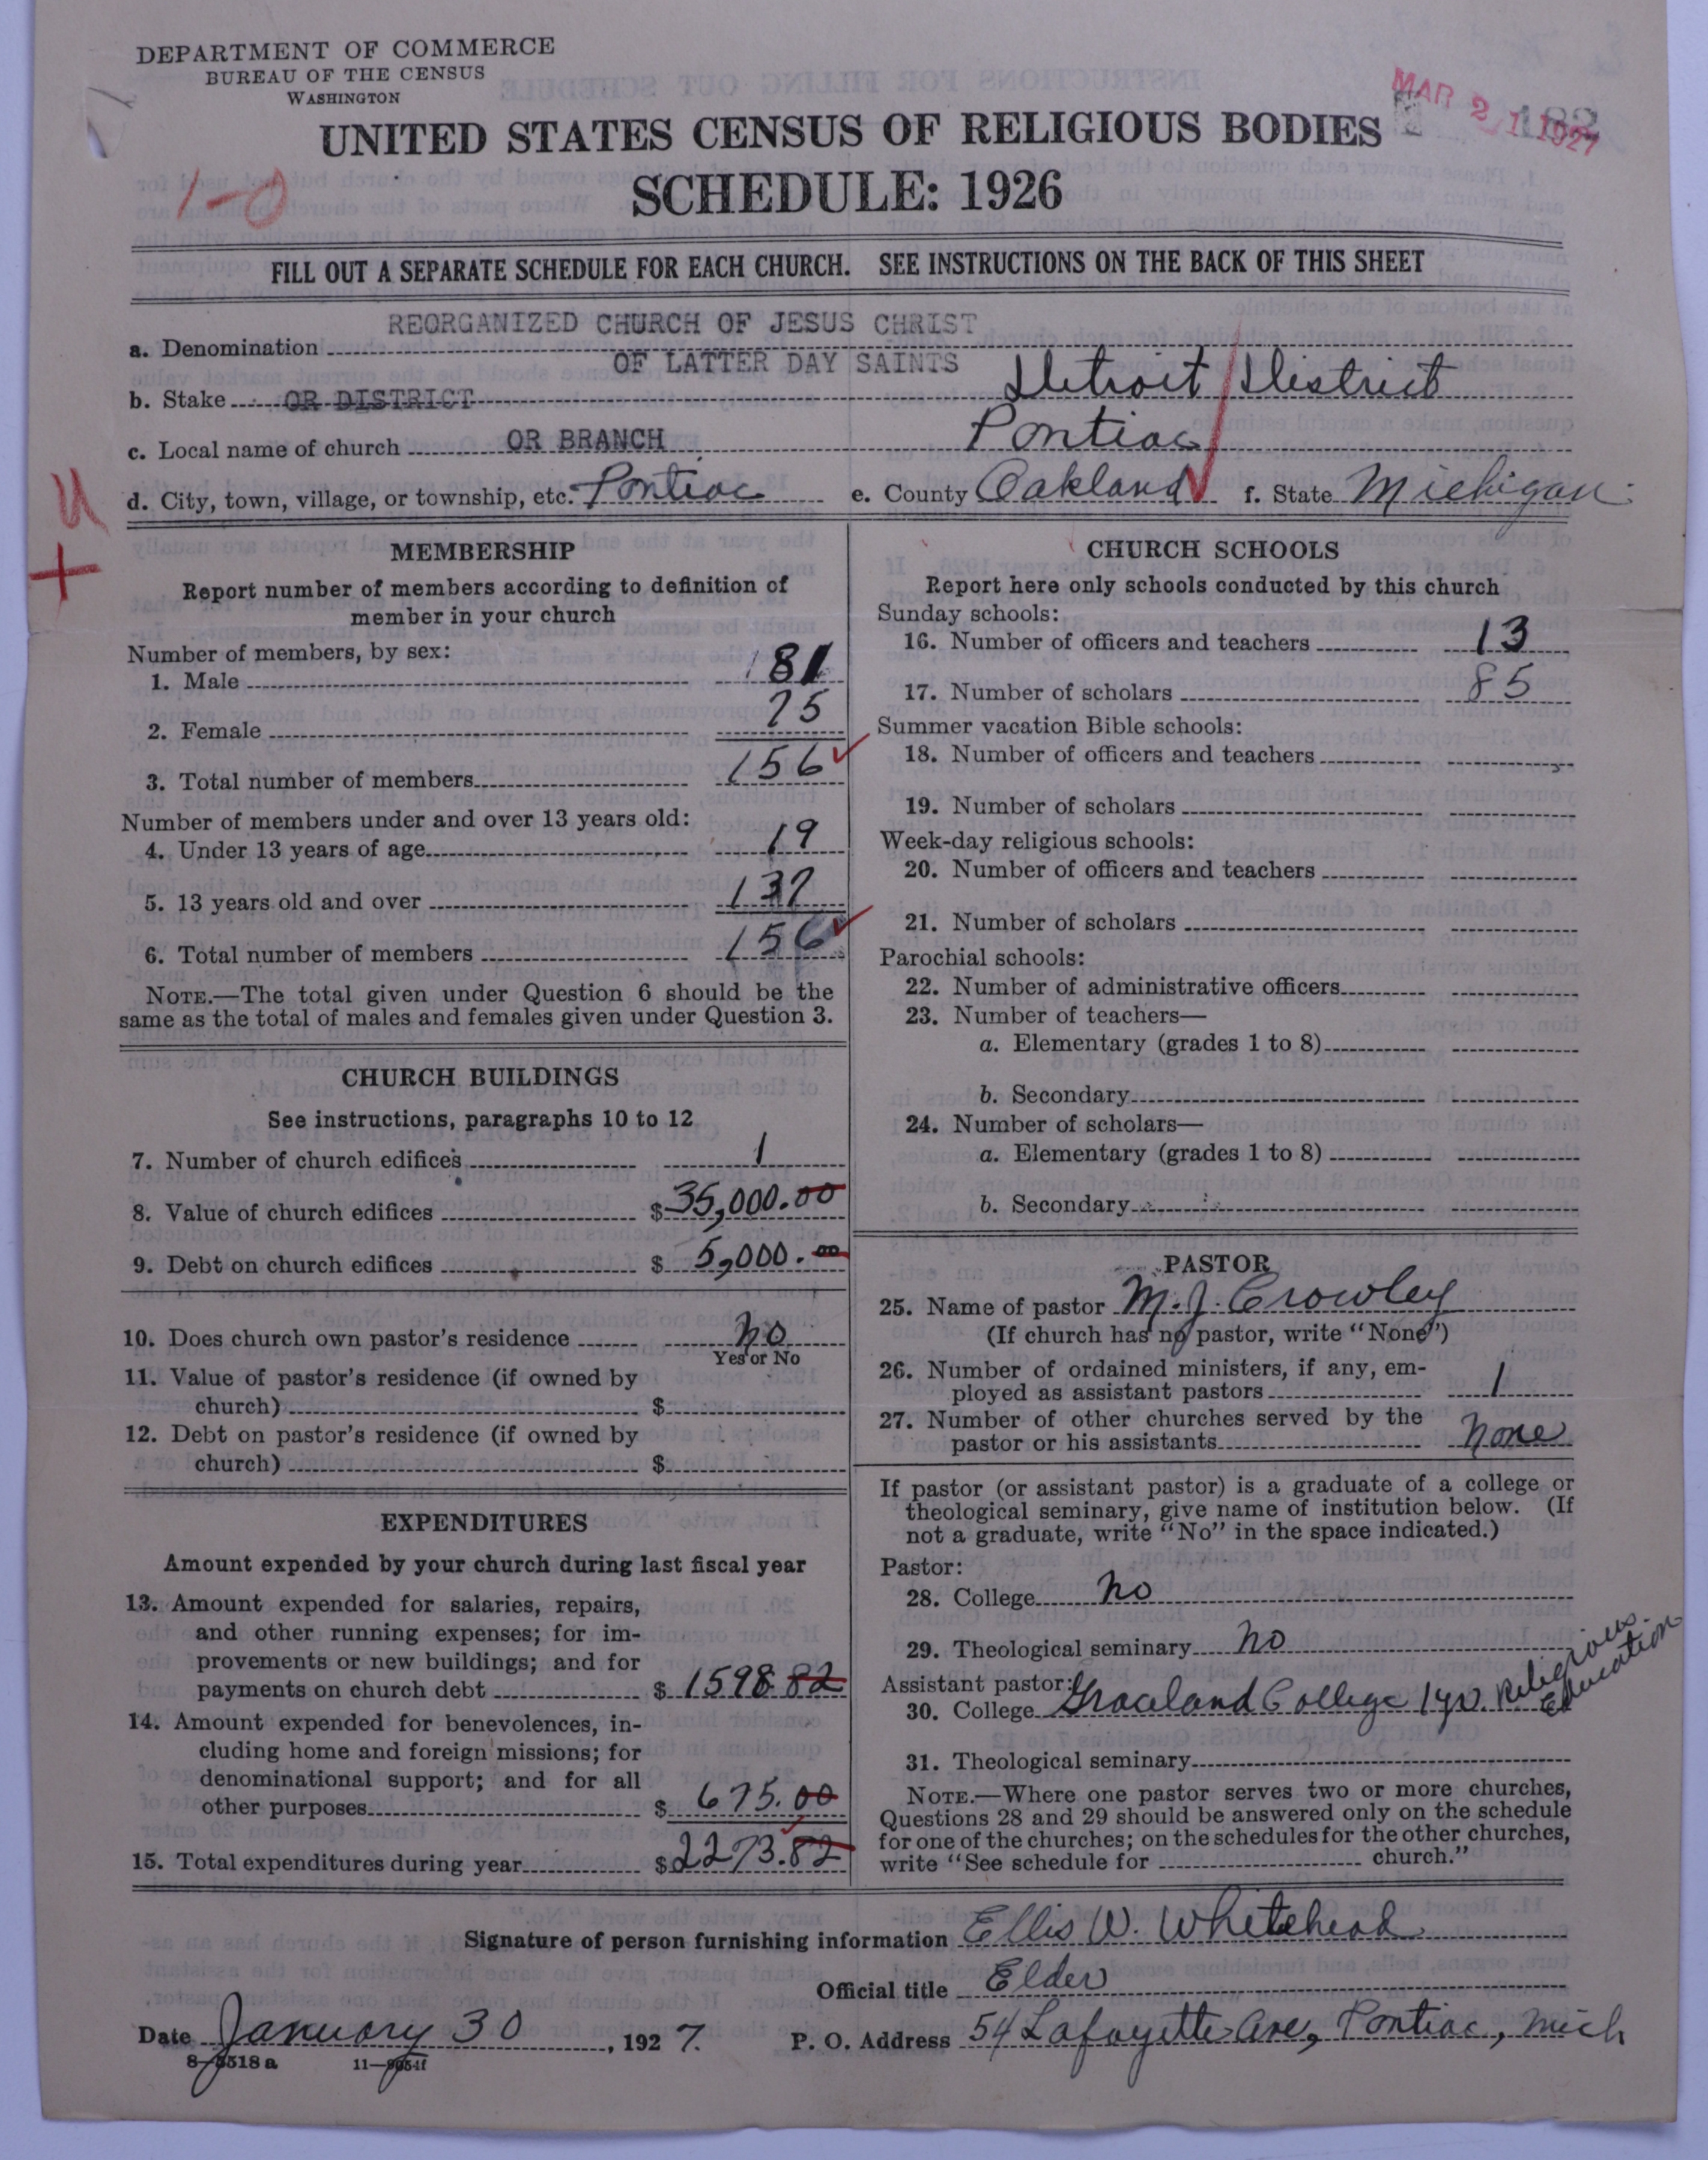 DEPARTMENT OF COMMERCE
BUREAU OF THE CENSUS
WASHINGTON
MAR 21 1927
UNITED STATES CENSUS OF RELIGIOUS BODIES
SCHEDULE: 1926
FILL OUT A SEPARATE SCHEDULE FOR EACH CHURCH. SEE INSTRUCTIONS ON THE BACK OF THIS SHEET
REORGANIZED CHURCH OF JESUS CHRIST
a. Denomination
OF LATTER DAY SAINTS
b. Stake OR DISTRICT Detroit District
c. Local name of church OR BRANCH Pontiac
d. City, town, village, or township, etc. Pontiac e. County Oakland f. State Michigan
MEMBERSHIP
Report number of members according to definition of
member in your church
Number of members, by sex:
1. Male 81
2. Female 75
3. Total number of members 156
Number of members under and over 13 years old:
4. Under 13 years of age 19
5. 13 years old and over 137
6. Total number of members 156
NOTE.—The total given under Question 6 should be the
same as the total of males and females given under Question 3.
CHURCH BUILDINGS
See instructions, paragraphs 10 to 12
7. Number of church edifices 1
8. Value of church edifices $35,000.00
9. Debt on church edifices $ 5,000.00
10. Does church own pastor's residence No
Yes or No
11. Value of pastor's residence (if owned by
church) $
12. Debt on pastor's residence (if owned by
church) $
EXPENDITURES
Amount expended by your church during last fiscal year
13. Amount expended for salaries, repairs,
and other running expenses; for im-
provements or new buildings; and for
payments on church debt $ 1598.82
14. Amount expended for benevolences, in-
cluding home and foreign missions; for
denominational support; and for all
other purposes $ 675.00
15. Total expenditures during year $2273.82
CHURCH SCHOOLS
Report here only schools conducted by this church
Sunday schools:
16. Number of officers and teachers 13
17. Number of scholars 85
Summer vacation Bible schools:
18. Number of officers and teachers
19. Number of scholars
Week-day religious schools:
20. Number of officers and teachers
21. Number of scholars
Parochial schools:
22. Number of administrative officers
23. Number of teachers—
a. Elementary (grades 1 to 8)
b. Secondary
24. Number of scholars—
a. Elementary (grades 1 to 8)
b. Secondary
PASTOR
25. Name of pastor M. J. Crowley
(If church has no pastor, write "None")
26. Number of ordained ministers, if any, em-
ployed as assistant pastors 1
27. Number of other churches served by the
pastor or his assistants None
If pastor (or assistant pastor) is a graduate of a college or
theological seminary, give name of institution below. (If
not a graduate, write "No" in the space indicated.)
Pastor:
28. College No
29. Theological seminary No
Assistant pastor:
30. College Graceland College 1 yr. Religious Education
31. Theological seminary
NOTE.—Where one pastor serves two or more churches,
Questions 28 and 29 should be answered only on the schedule
for one of the churches; on the schedules for the other churches,
write "See schedule for church."
Signature of person furnishing information Ellis W. Whitehead
Official title Elder
Date January 30, 1927. P. O. Address 54 Lafayette Ave, Pontiac, Mich